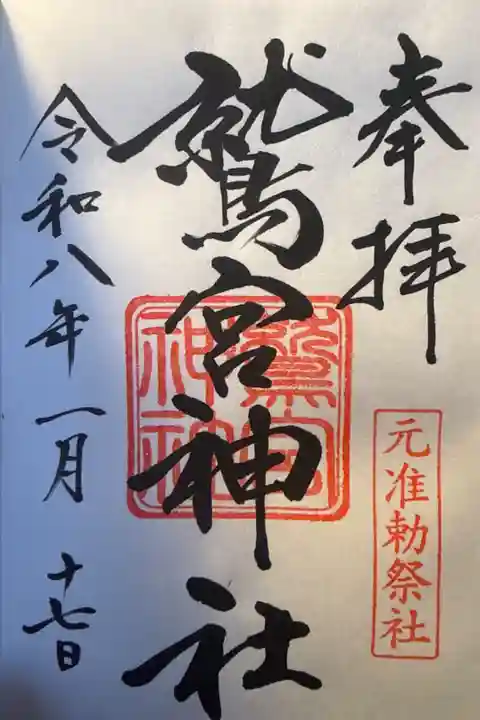 奉拝
元准勅祭社
鷲宮神社
鷲宮
神社
令和八年一月十七日